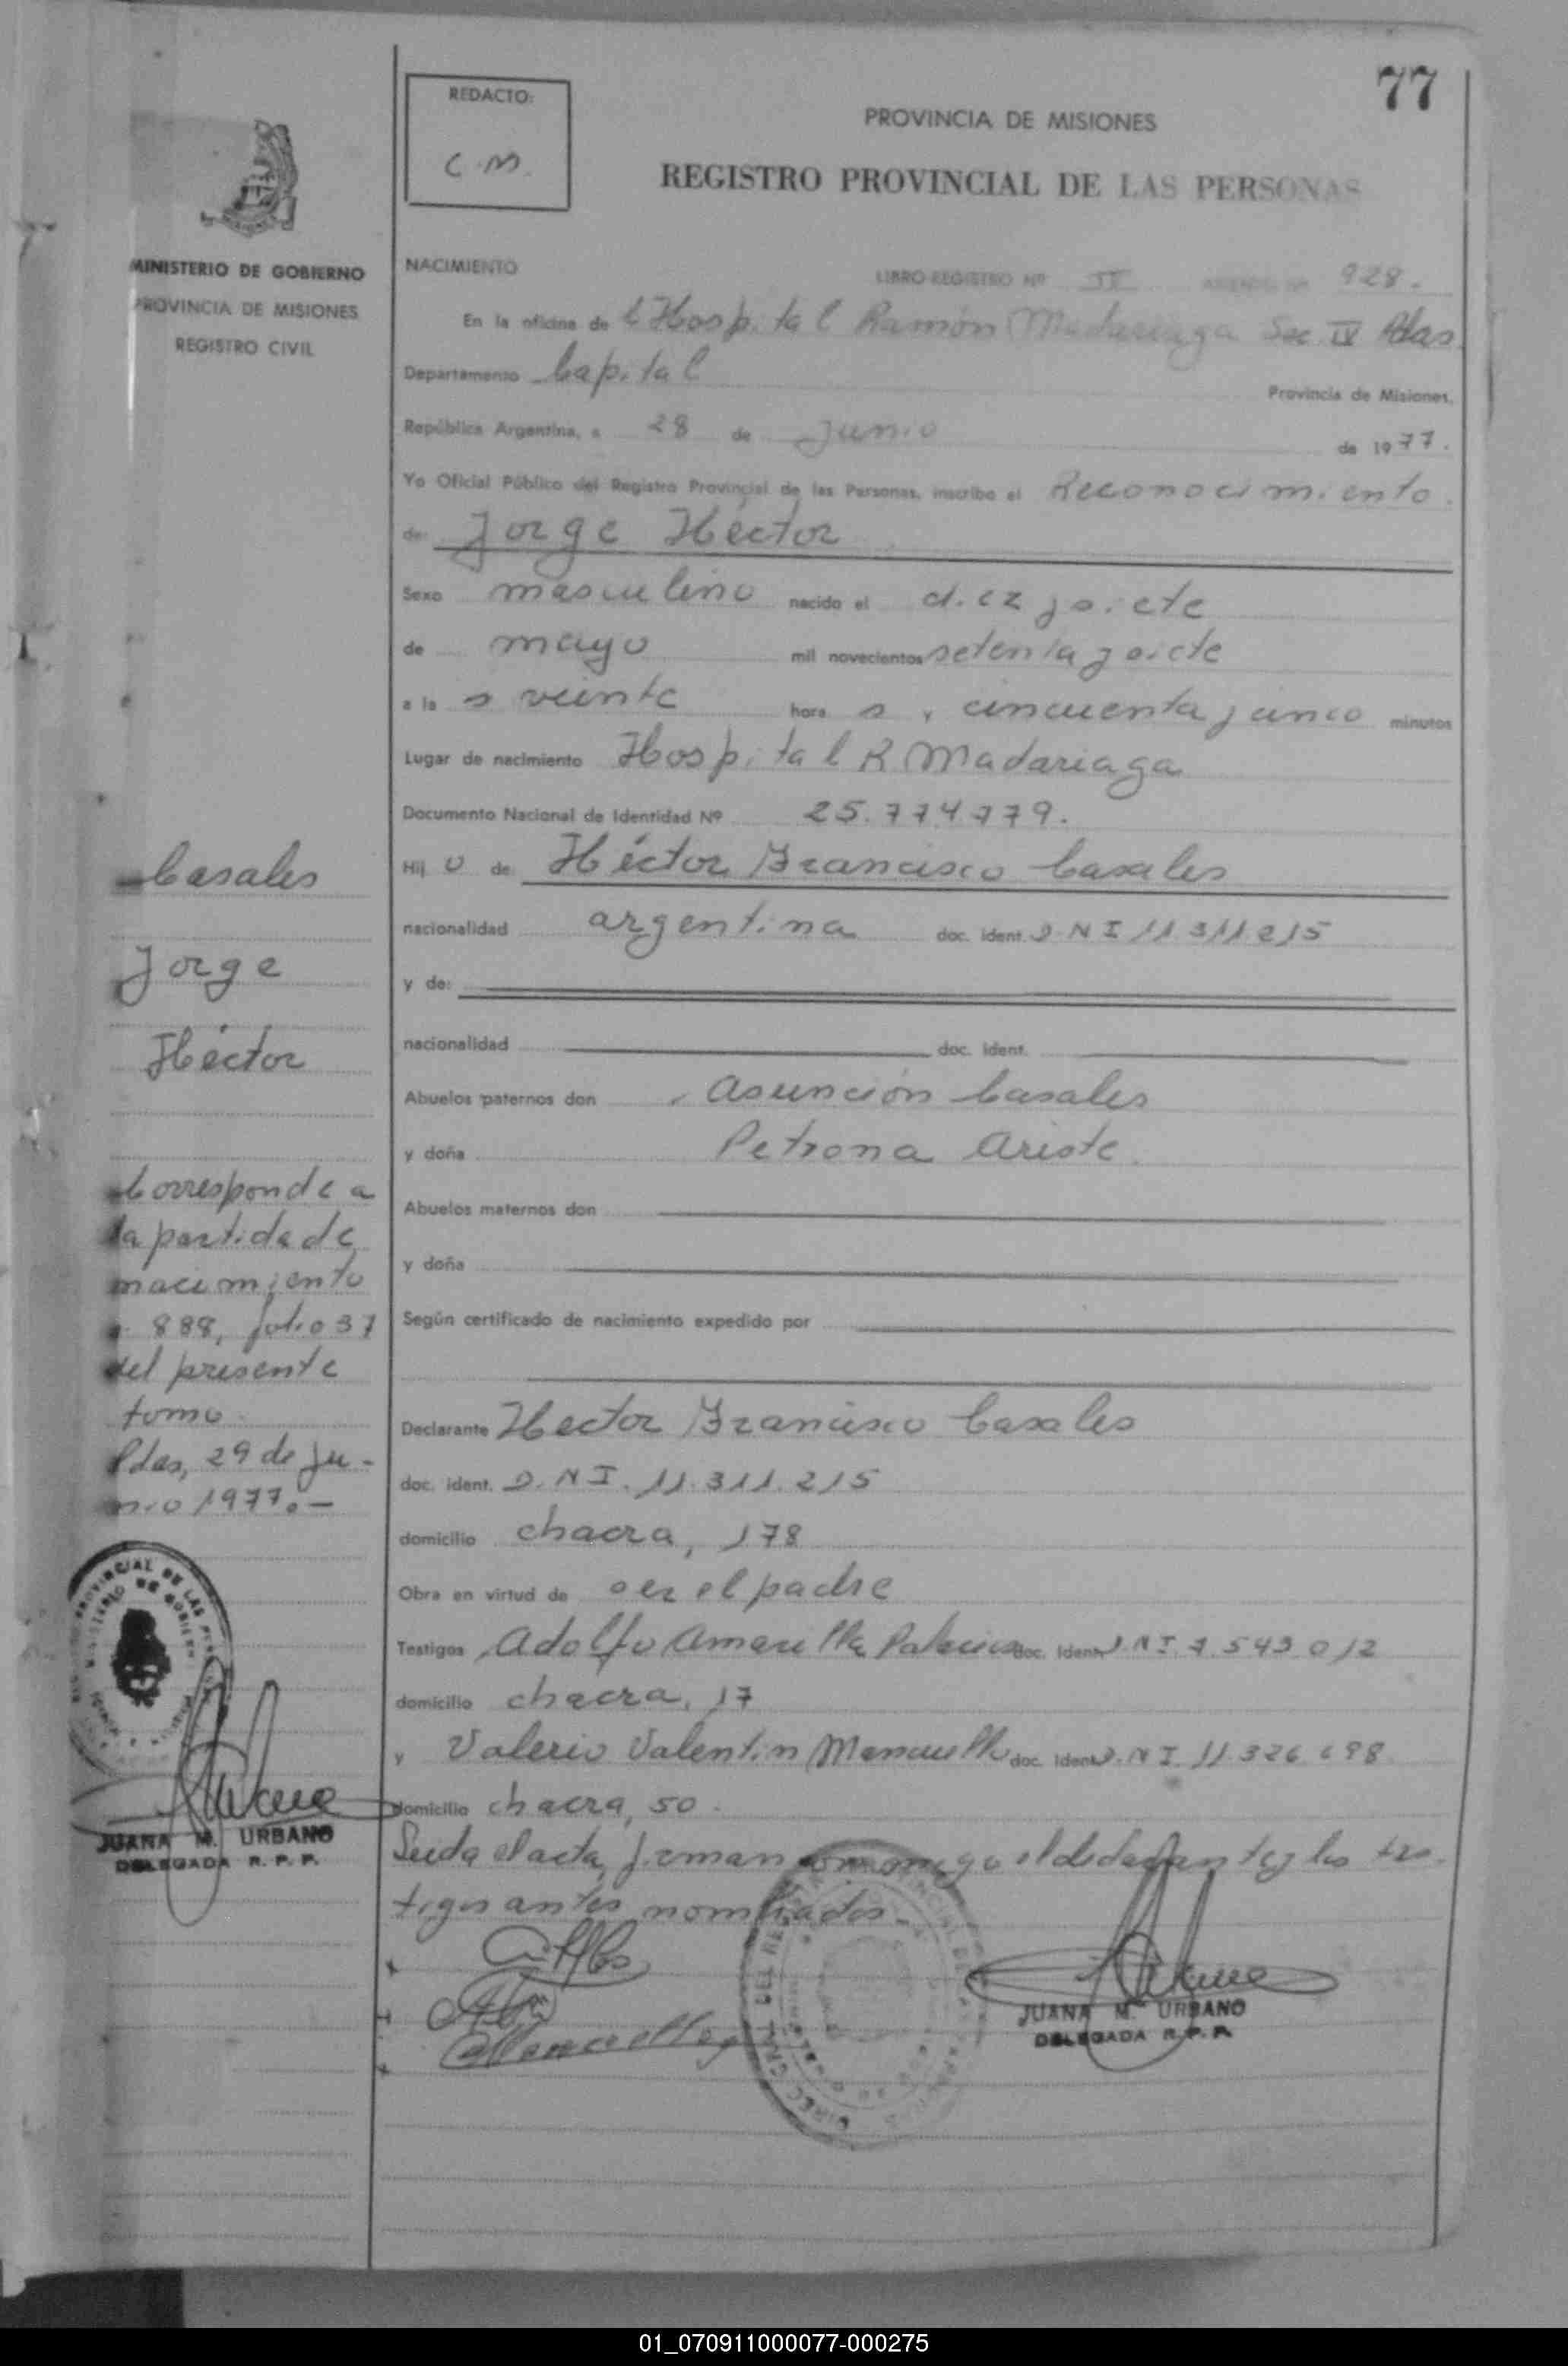 77
REDACTO:
C.M.
PROVINCIA DE MISIONES
REGISTRO PROVINCIAL DE LAS PERSONAS
MINISTERIO DE GOBIERNO
PROVINCIA DE MISIONES
REGISTRO CIVIL
NACIMIENTO
LIBRO REGISTRO Nº II 928.
En la oficina de Hospital Ramón Madariaga Sec IV Pdas
Departamento Capital Provincia de Misiones,
República Argentina, a 28 de Junio de 1977.
Yo Oficial Público del Registro Provincial de las Personas, inscribo el Reconocimiento.
de: Jorge Héctor
Sexo masculino nacido el diez y siete
de mayo mil novecientos setenta y siete
a la s veinte hora s y cincuenta y cinco minutos
Lugar de nacimiento Hospital R Madariaga
Documento Nacional de Identidad Nº 25.774.779.
Hij o de: Héctor Francisco Casales
nacionalidad argentina doc. ident. D.N.I 11.311.215
y de:
nacionalidad doc. ident.
Abuelos paternos don Asunción Casales
y doña Petrona Ariste.
Abuelos maternos don
y doña
Según certificado de nacimiento expedido por
Declarante Hector Francisco Casales
doc. ident. D.N.I. 11.311.215
domicilio chacra, 178
Obra en virtud de ser el padre
Testigos Adolfo Amarilla Palacios doc. ident. D.N.I. 7.543.012
domicilio chacra, 17
y Valerio Valentin Mancuello doc. ident. D.N.I. 11.326.698
domicilio chacra, 50.
Leida el acta, firman conmigo el declarante y los tes-
tigos antes nombrados.
JUANA M. URBANO
DELEGADA R.P.P.
Casales
Jorge
Héctor
Corresponde a
la partida de
nacimiento
888, folio 37
del presente
tomo.
Pdas, 29 de ju-
nio 1977.-
JUANA M. URBANO
DELEGADA R.P.P.
01_070911000077-000275